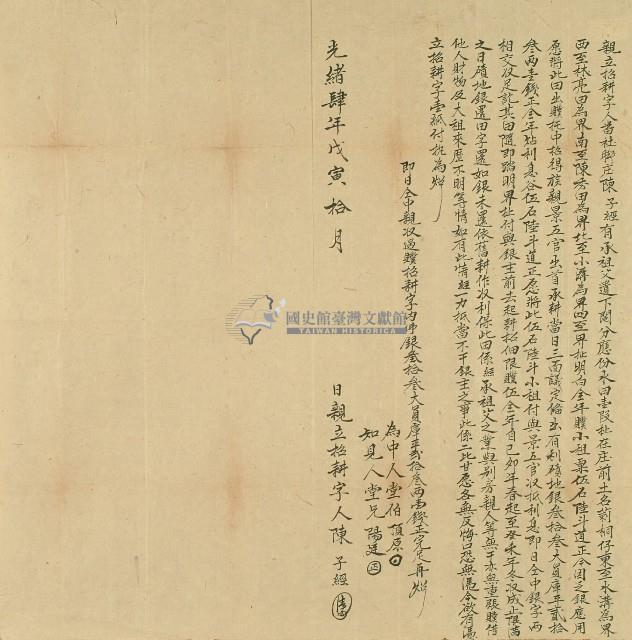 親立招耕字人番社腳庄陳子經有承祖父遺下鬮分應份水田壹段址在庄前土名莿桐仔東至水溝為界
西至林亮田為界南至陳秀田為界北至小溝為界四至界址明白全年贌小租粟伍石陸斗道正今因乏銀應用
愿將此田出贌托中招得族親景五官出首承耕當日三面議定備出有利磧地銀叁拾叁大員庫平貳拾
叁兩壹錢正全年貼利息谷伍石陸斗道正愿將此伍石陸斗小租付與景五官收抵利息即日全中銀字兩
相交收足訖其田隨即踏明界址付與銀主前去起耕招佃限贌伍全年自己卯年春起至癸未年冬收成止限滿
之日磧地銀還田字還如銀未還依舊耕作收利保此田係經承祖父之業與別房親人等無干亦無重張贌借
他人財物及大租來歷不明等情如有此情經一力抵當不干銀主之事此係二比甘愿各無反悔口恐無憑今欲有憑
立招耕字壹紙付執為炤
即日全中親收過贌招耕字內佛銀叁拾叁大員庫平貳拾叁兩壹錢正完足再炤
為中人堂伯頂原
知見人堂兄陽廷
光緒肆年戊寅拾月 日親立招耕字人陳子經
國史館臺灣文獻館
TAIWAN HISTORICA